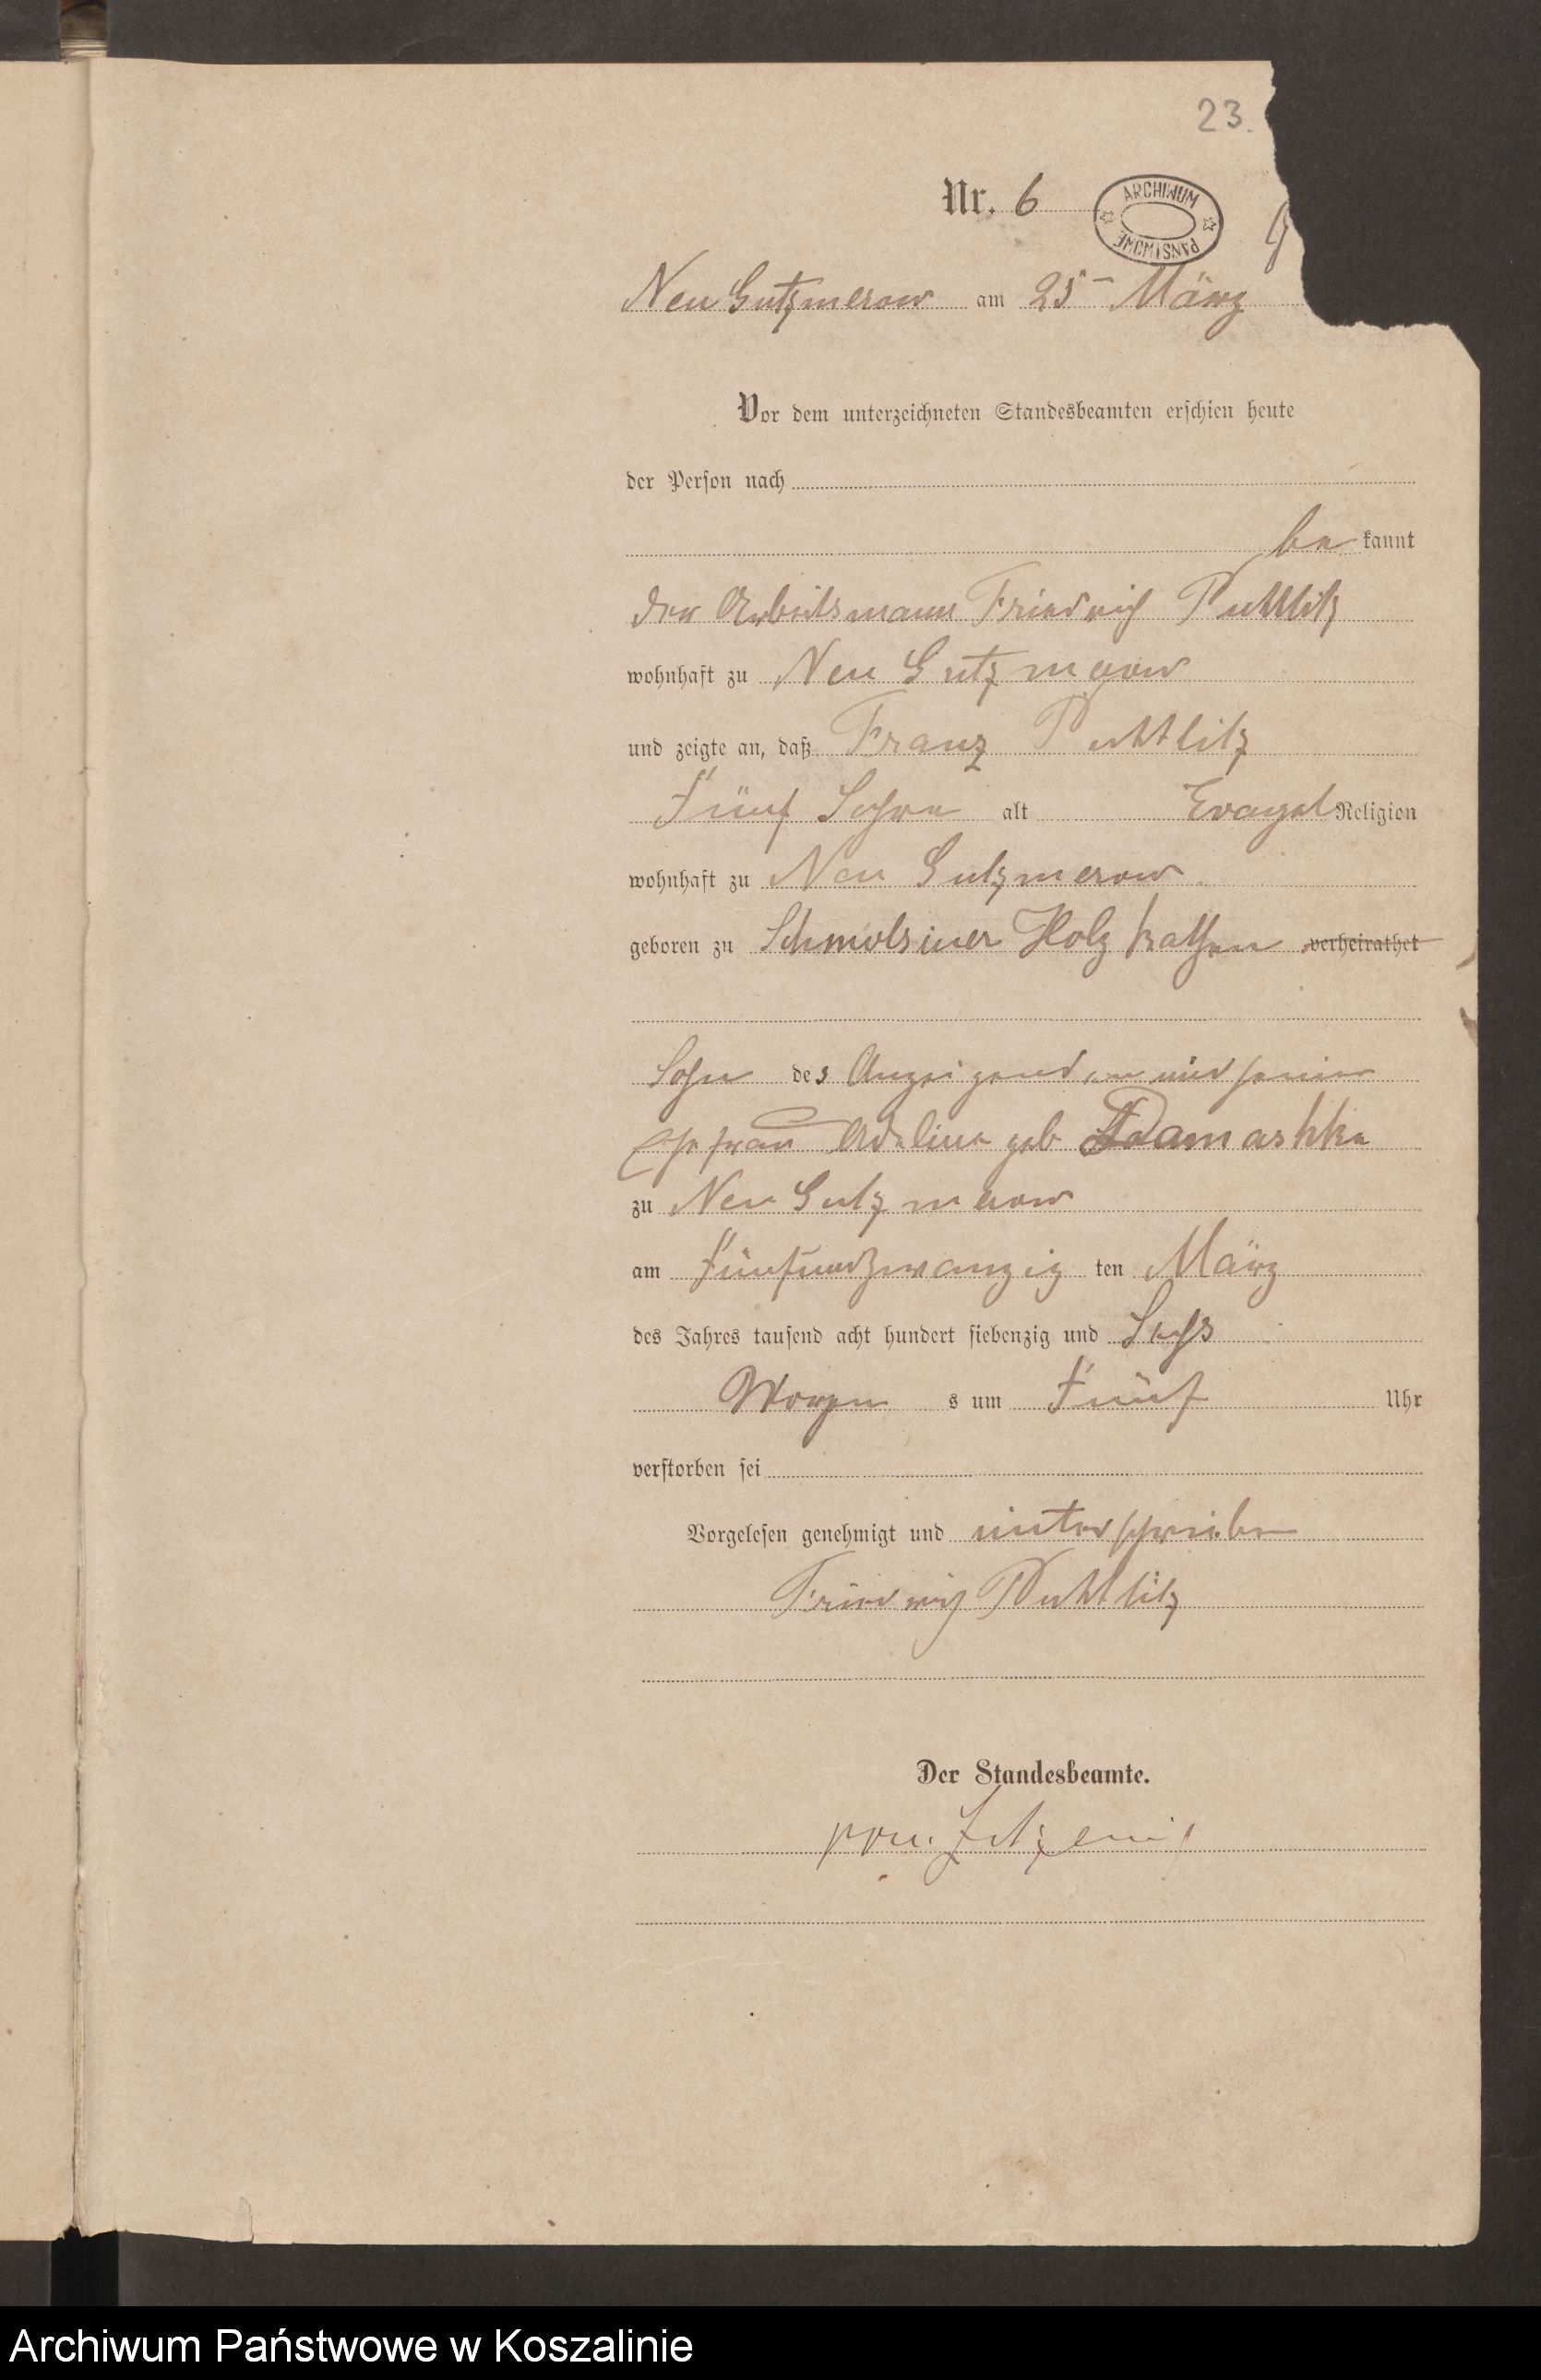 23.
Nr. 6
ARCHIWUM PAŃSTWOWE
Neu Gutzmerow am 25ᵗ März
Vor dem unterzeichneten Standesbeamten erschien heute
der Person nach
be kannt
der Arbeitsmann Friedrich Puttlitz
wohnhaft zu Neu Gutzmerow
und zeigte an, daß Franz Puttlitz
Fünf Jahre alt Evangel Religion
wohnhaft zu Neu Gutzmerow
geboren zu Schmolsiner Holzkathen verheirathet
Sohn des Anzeigenden und seiner
Ehefrau Adeline geb Damashke
zu Neu Gutzmerow
am Fünfundzwanzig ten März
des Jahres tausend acht hundert siebenzig und Sechs
Morgen s um Fünf Uhr
verstorben sei
Vorgelesen genehmigt und unterschrieben
Friedrich Puttlitz
Der Standesbeamte.
Archiwum Państwowe w Koszalinie